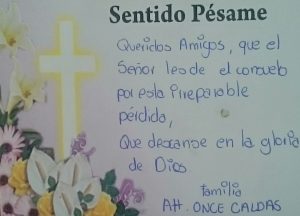 Sentido Pésame
Queridos Amigos, que el
Señor les de el consuelo
por esta irreparable
pérdida,
Que descanse en la gloria
de Dios
familia
Att. ONCE CALDAS